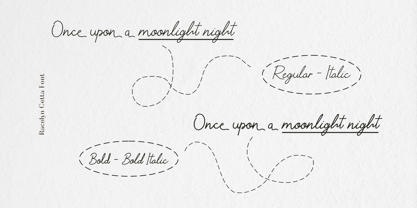 Once upon a moonlight night
Regular - Italic
Racolyn Cutta Font
Once upon a moonlight night
Bold - Bold Italic